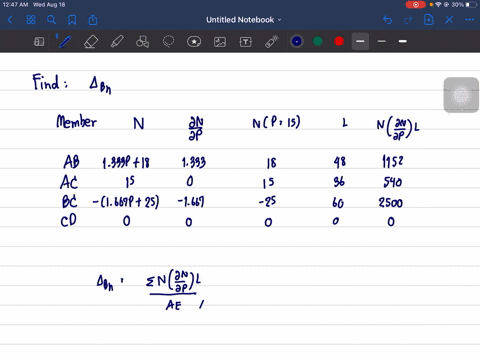 12:47 AM Wed Aug 18
30%
Untitled Notebook
Find: ΔBn
Member N ∂N/∂P N(P=15) L N(∂N/∂P)L
AB 1.333P+18 1.333 18 48 1152
AC 15 0 15 36 540
BC -(1.667P+25) -1.667 -25 60 2500
CD 0 0 0 0 0
ΔBn = ΣN(∂N/∂P)L
AE